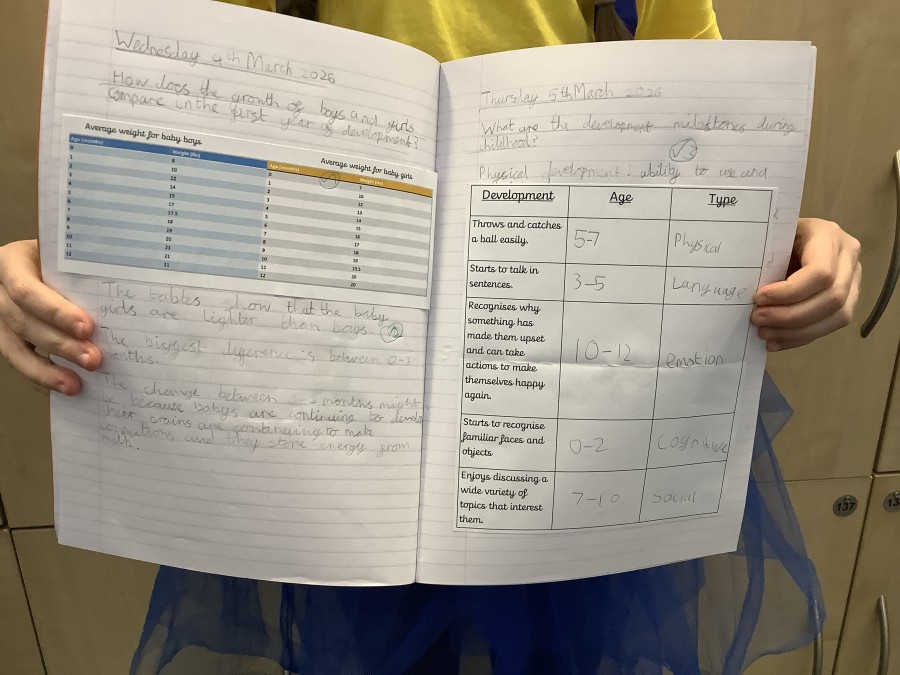 Wednesday 4th March 2026
How does the growth of boys and girls
compare in the first year of development?
Average weight for baby boys
Age (months) Weight (lbs)
0 8
1 10
2 12
3 14
4 15
5 17
6 17.5
7 18
8 19
9 20
10 21
11 21
12 21
Average weight for baby girls
Age (months) Weight (lbs)
0 7
1 10
2 12
3 13
4 14
5 15
6 16
7 17
8 18
9 19
10 19.5
11 19
12 20
The tables show that the baby
girls are lighter than boys.
The biggest is between 0-3
months.
The change between months might
be because babys are continuing to
their brains are continuing to make
and they store energy from
milk.
Thursday 5th March 2026
What are the development during
childhood?
Physical development: ability to use and
Development Age Type
Throws and catches
a ball easily.
5-7 Physical
Starts to talk in
sentences.
3-5 Language
Recognises why
something has
made them upset
and can take
actions to make
themselves happy
again.
10-12 emotion
Starts to recognise
familiar faces and
objects
0-2 Cognitive
Enjoys discussing a
wide variety of
topics that interest
them.
7-10 social
137